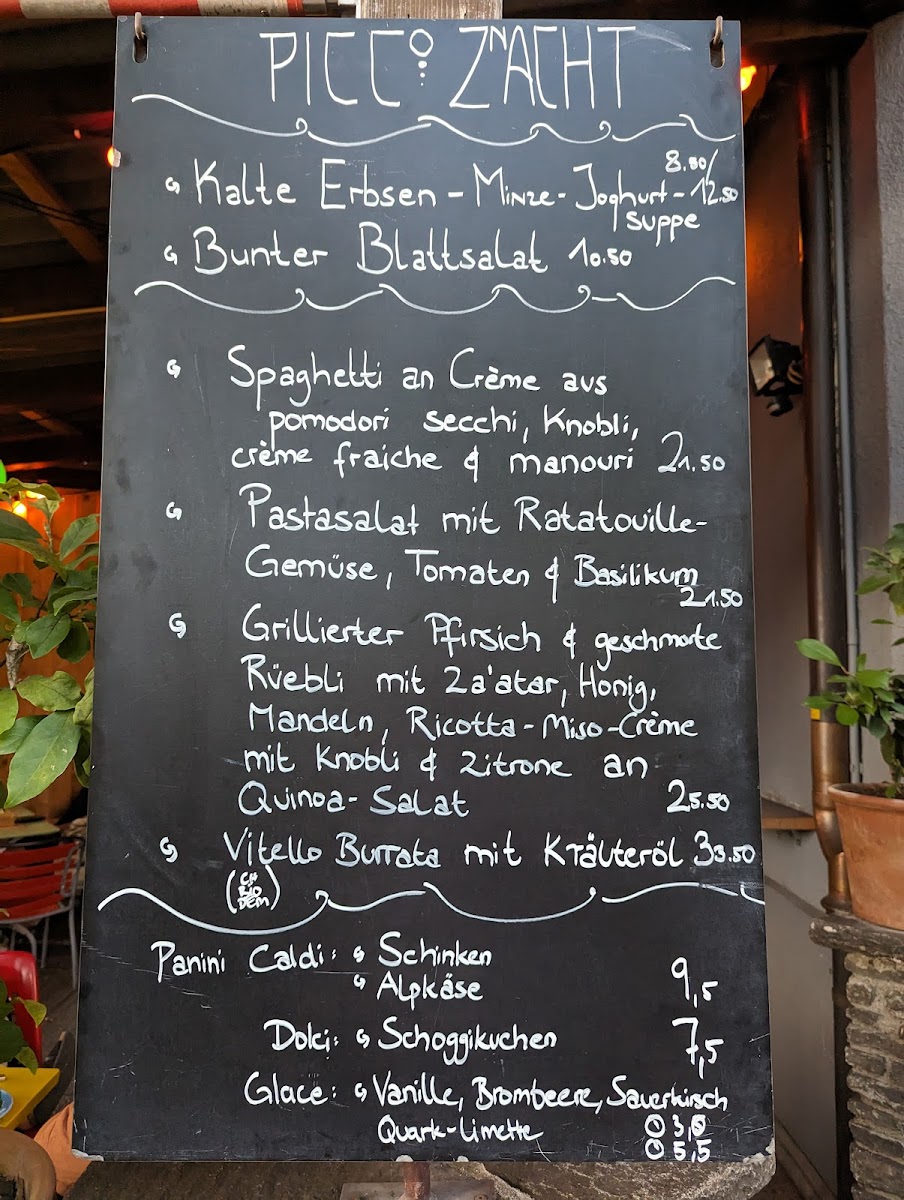 PICCO ZNACHT
Kalte Erbsen-Minze-Joghurt- 8.50/12.50
suppe
Bunter Blattsalat 10.50
Spaghetti an Crème aus
pomodori secchi, Knobli,
crème fraiche & manouri 21.50
Pastasalat mit Ratatouille-
Gemüse, Tomaten & Basilikum
21.50
Grillierter Pfirsich & geschmorte
Rüebli mit Za'atar, Honig,
Mandeln, Ricotta-Miso-Crème
mit Knobli & Zitrone an
Quinoa-Salat 25.50
Vitello Burrata mit Kräuteröl 33.50
(CH
BIO
DEM)
Panini Caldi: Schinken
Alpkäse 9,5
Dolci: Schoggikuchen 7,5
Glace: Vanille, Brombeere, Sauerkirsch
Quark-Limette 3,0
5,5